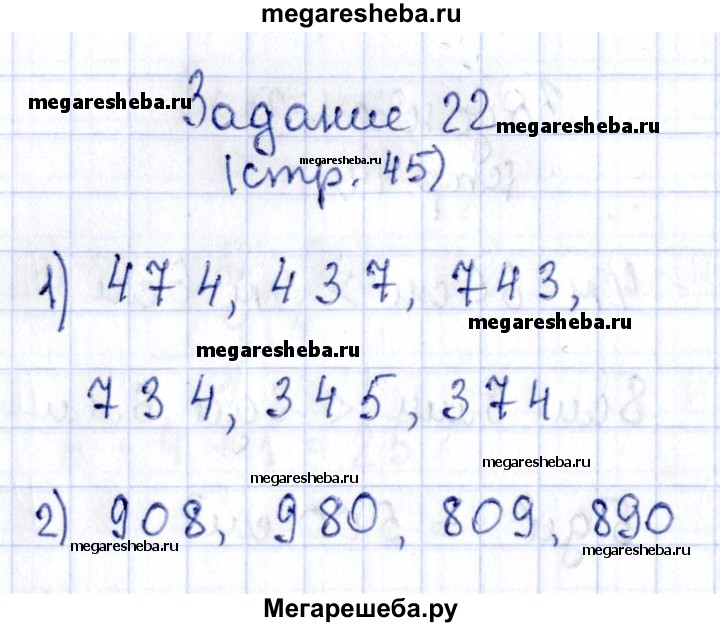 megaresheba.ru
megaresheba.ru
Задание 22
megaresheba.ru
megaresheba.ru
(стр. 45)
1) 474, 437, 743,
megaresheba.ru
megaresheba.ru
734, 345, 374
megaresheba.ru
megaresheba.ru
2) 908, 980, 809, 890
megaresheba.ru
megaresheba.ru
Мегарешеба.ру